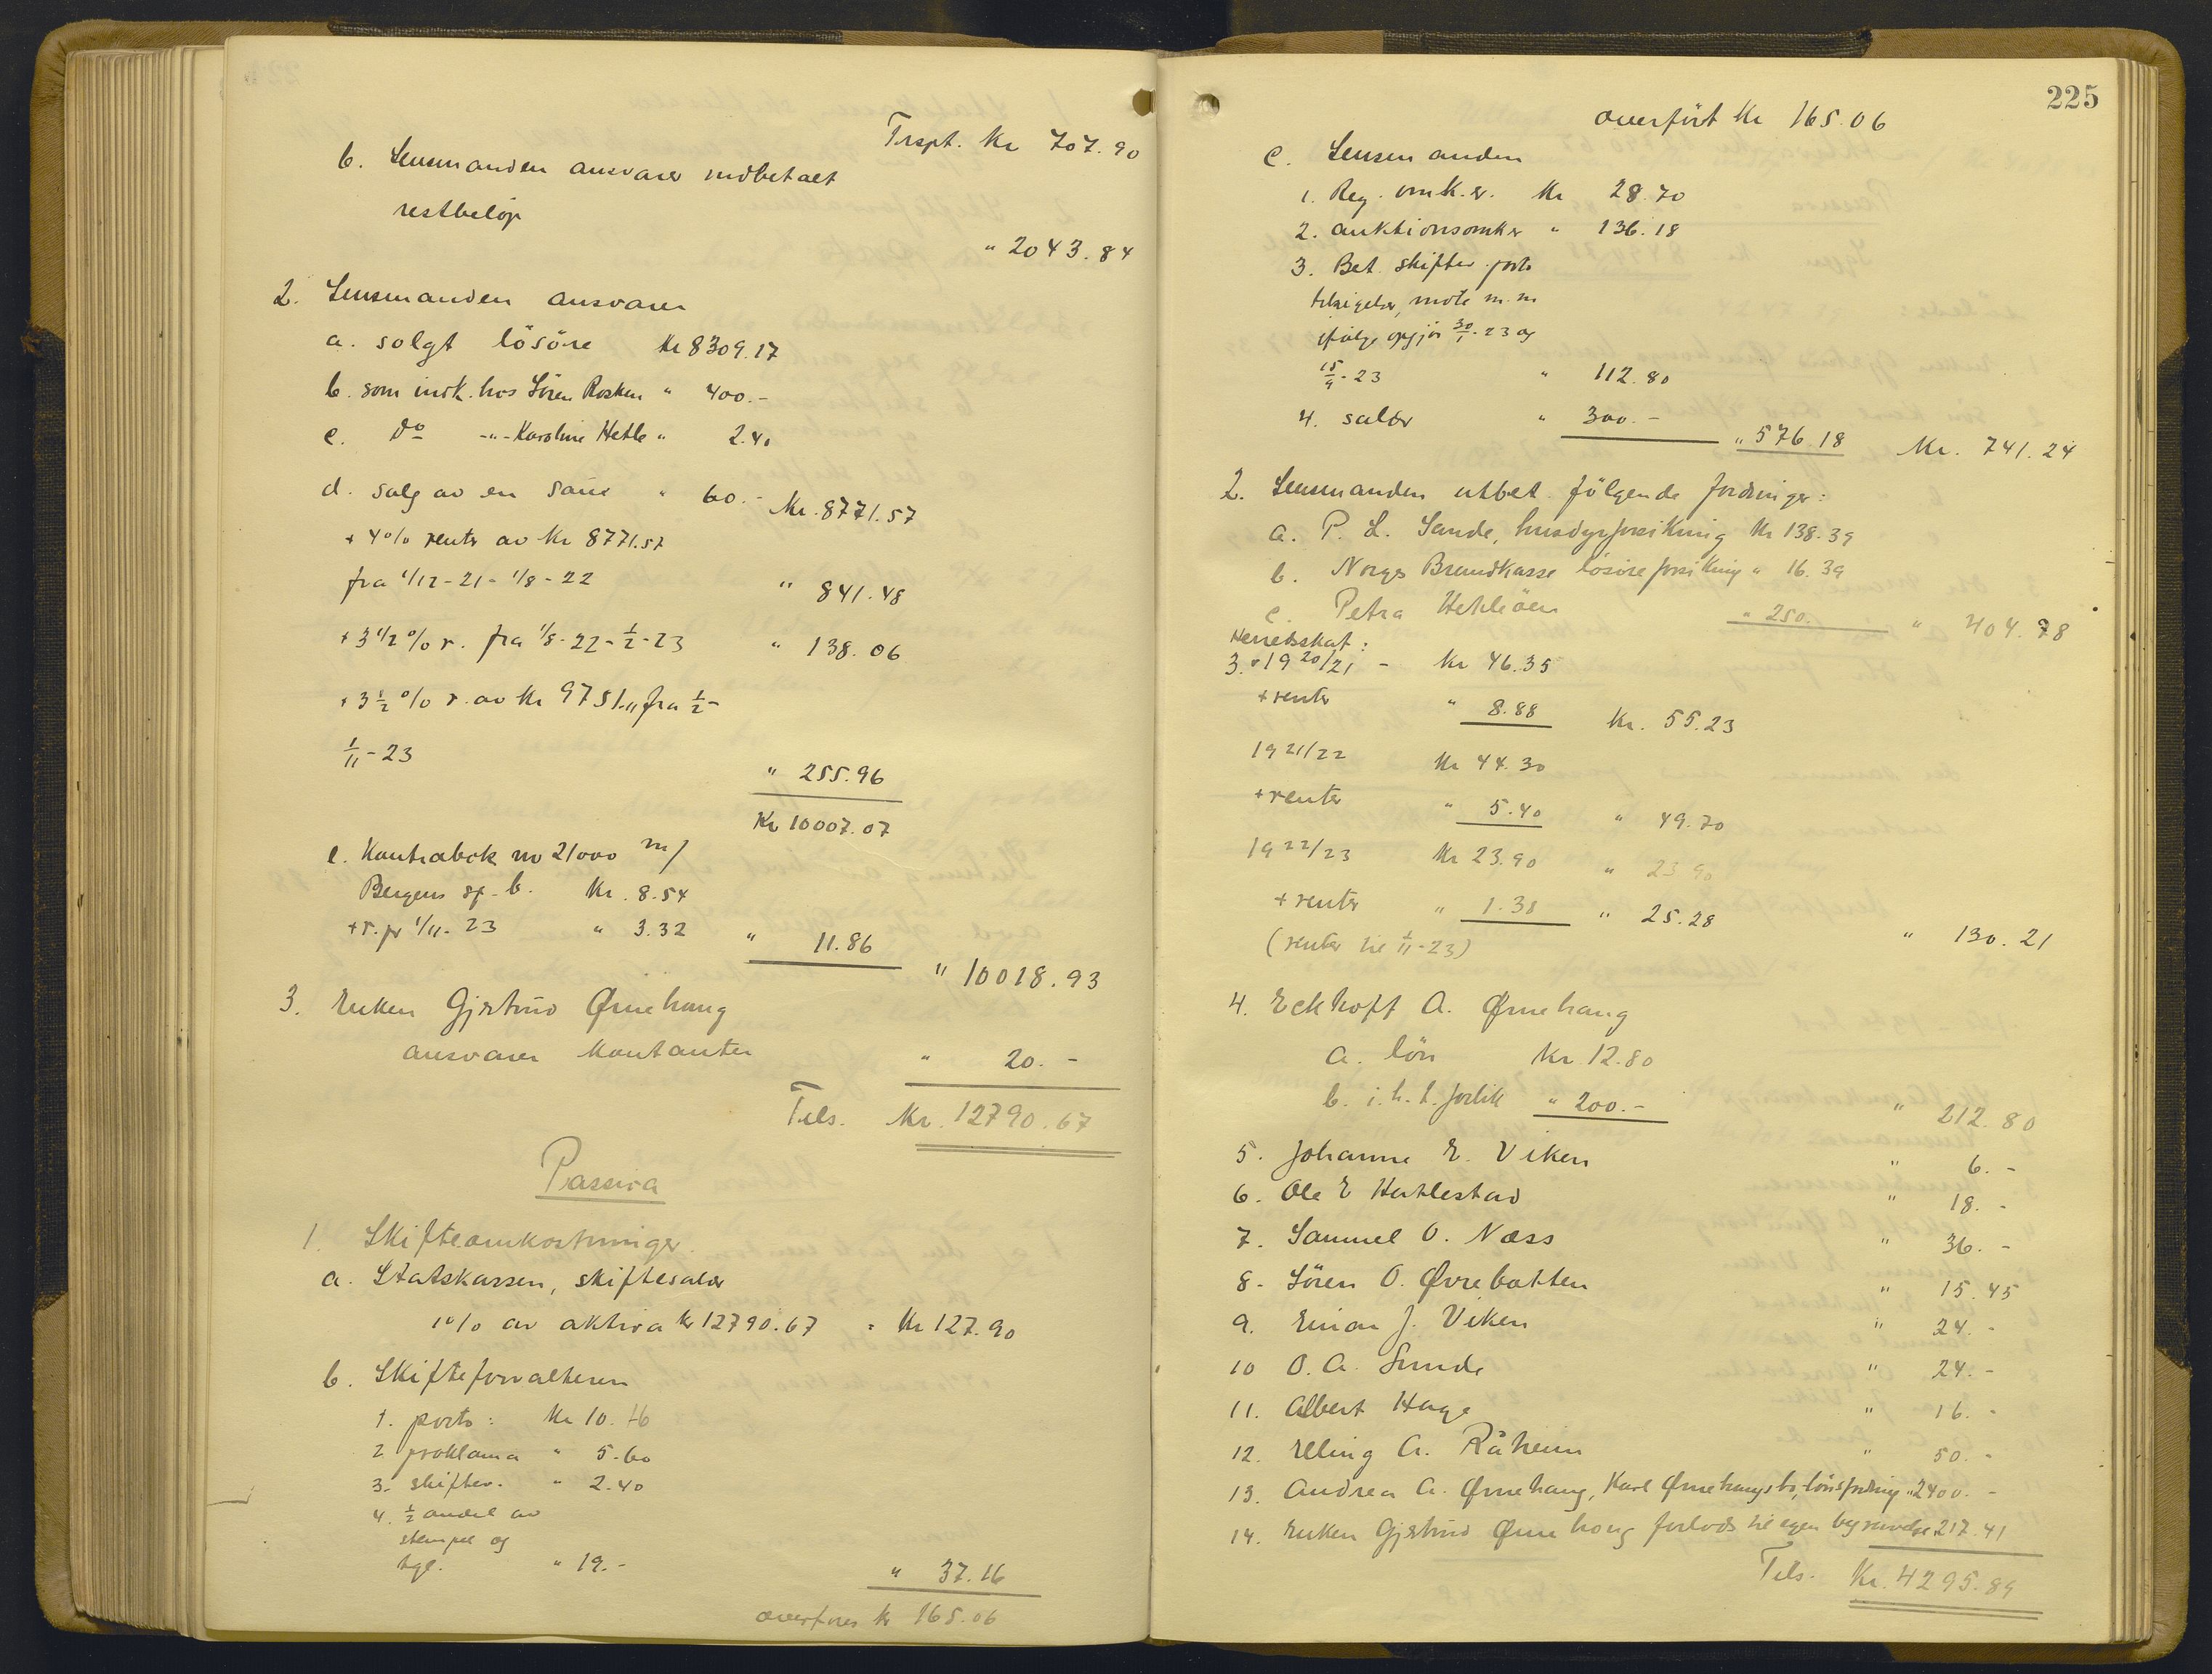 Trspt. Kr 707.90
b. Lensmanden ansvarer indbetalt
restbeløp
" 2043.84
2. Lensmanden ansvarer
a. solgt lösöre Kr 8309.17
b. som indk. hos Sören Rosken " 400.-
c. do -"- Karoline Hetle " 2.40
d. salg av en saue " 60.- Kr. 8771.57
+ 4% rente av Kr 8771.57
fra 1/12-21 - 1/8-22 " 841.48
+ 3 1/2 % r. fra 1/8-22 - 1/2-23 " 138.06
+ 3 1/2 % r. av Kr 9751.11 fra 1/2 -
1/11-23
" 255.96
Kr 10007.07
e. Kontrabok no 21000 m/
Bergens sp.b. Kr. 8.54
+ r. pr 1/11-23 " 3.32 " 11.86
" 10018.93
3. Enken Gjertrud Ørnehaug
ansvarer kontanter " 20.-
Tils. Kr. 12790.67
Passiva
1. Skifteomkostninger.
a. Statskassen, skiftesalær
1% av aktiva kr 12790.67 = Kr 127.90
b. Skifteforvalteren
1. porto: Kr 10.16
2. proklama " 5.60
3. skiftev. " 2.40
4. 1/2 andel av
stempel og
tgl. " 19.- " 37.16
overføres kr 165.06
225
overfört Kr 165.06
c. Lensmanden
1. Reg. omk.r. Kr 28.70
2. auktionsomkr " 136.18
3. Bet. skiftev. porto
tilsigelser, møte m.m
ifølge opgjør 30/1-23 og
15/9-23 " 112.80
4. salær " 300.- " 576.18 Kr. 741.24
2. Lensmanden utbet. følgende fordringer:
a. P. L. Sande, husdyrforsikring Kr 138.39
b. Norges Brandkasse lösöreforsikring " 16.39
c. Petra Hetleöen " 250. " 404.78
Herredsskat:
3. 1920/21 - Kr 46.35
+ renter " 8.88 Kr. 55.23
1921/22 Kr 44.30
+ renter " 5.40 " 49.70
1922/23 Kr 23.90 " 23 90
+ renter " 1.38 " 25.28
" 130.21
(renter til 1/11-23)
4. Eckhoff A. Ørnehaug
a. lön Kr. 12.80
b. i.h.t. forlik " 200.- " 212.80
5. Johanne E. Viken " 6.-
6. Ole E Hatlestad " 18.-
7. Samuel O. Næss " 36.-
8. Sören O. Øvrebotten " 15.45
9. Einar J. Viken " 24.-
10 O. A. Sunde " 24.-
11. Albert Hage " 16.-
12. Elling A. Råheim " 50.-
13. Andrea A. Ørnehaug, Karl Ørnehaugs bo, lönsfordring " 2400.-
14. Enken Gjertrud Ørnehaug forlods til egen begravelse 217.41
Tils. Kr. 4295.89